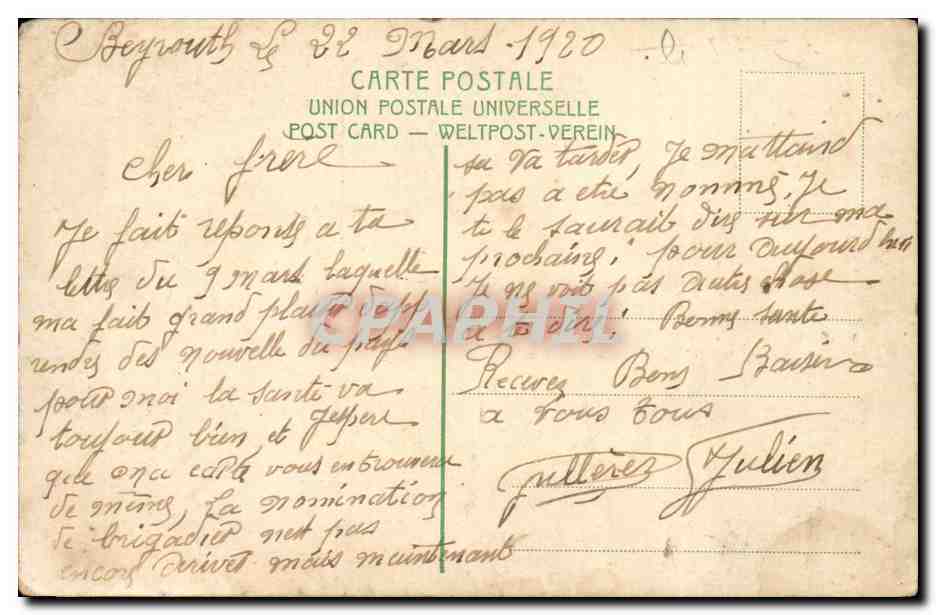 Beyrouth Le 22 Mars 1920
CARTE POSTALE
UNION POSTALE UNIVERSELLE
POST CARD — WELTPOST-VEREIN
Cher frere
Je fait reponse a ta
lettre du 9 mars laquelle
ma fait grand plaisir dapp
rendre des nouvelle du pays
pour moi la santé va
toujour bien et Jespere
que ma carte vous en trouvera
de même, La nomination
de brigadier net pas
encore arivet mais maintenant
sa va tarder, Je mattand
pas a etre nommé, Je
te le saurait dire sur ma
prochaine; pour aujourdhui
Je ne voit pas dautre chose
a te dire; Bonne santé
Recevez Bons Baisers
a vous tous
Julien
CPAPHIL